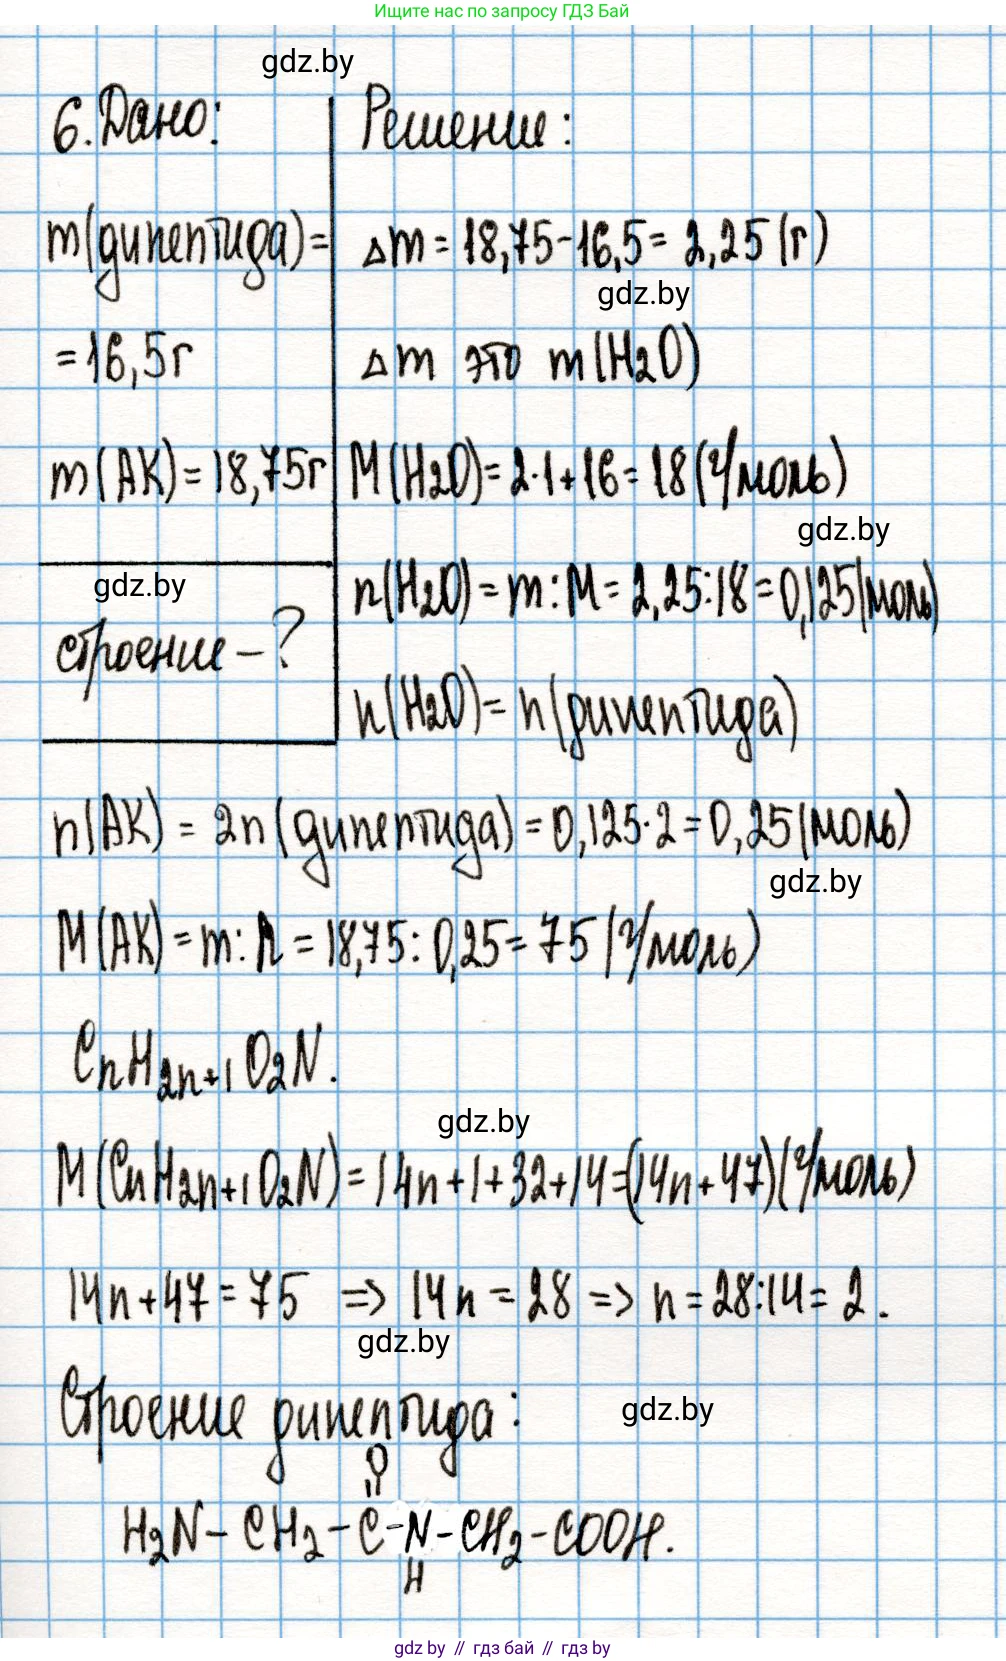 Ищите нас по запросу ГДЗ Бай
gdz.by
6. Дано:
Решение:
m(дипептида)=
Δm = 18,75-16,5= 2,25 (г)
gdz.by
=16,5г
Δm это m(H₂O)
m(АК)=18,75г
M(H₂O)=2·1+16=18(г/моль)
gdz.by
gdz.by
n(H₂O)=m:M=2,25:18=0,125(моль)
строение-?
n(H₂O)=n(дипептида)
n(АК) = 2n(дипептида)=0,125·2=0,25(моль)
gdz.by
M(АК)=m:n=18,75:0,25=75(г/моль)
CnH₂n+₁O₂N.
gdz.by
M(CnH₂n+₁O₂N)=14n+1+32+14=(14n+47)(г/моль)
14n+47=75 => 14n=28 => n=28:14=2.
gdz.by
Строение дипептида:
gdz.by
O
"
H₂N-CH₂-C-N-CH₂-COOH.
H
gdz by // гдз бай // гдз by